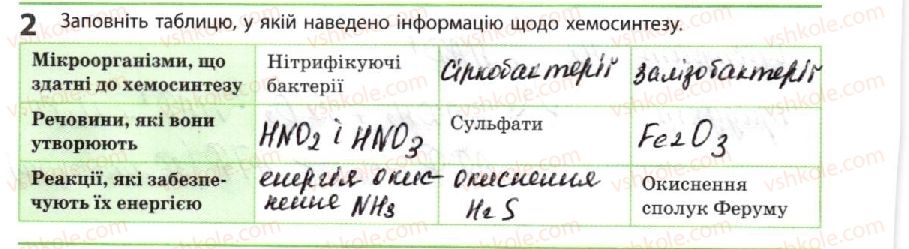 2 Заповніть таблицю, у якій наведено інформацію щодо хемосинтезу.
Мікроорганізми, що здатні до хемосинтезу
Нітрифікуючі бактерії
Сіркобактерії
Залізобактерії
Речовини, які вони утворюють
HNO2 і HNO3
Сульфати
Fe2O3
Реакції, які забезпе-
чують їх енергією
енергія окис-
нення NH3
окиснення
H2S
Окиснення
сполук Феруму